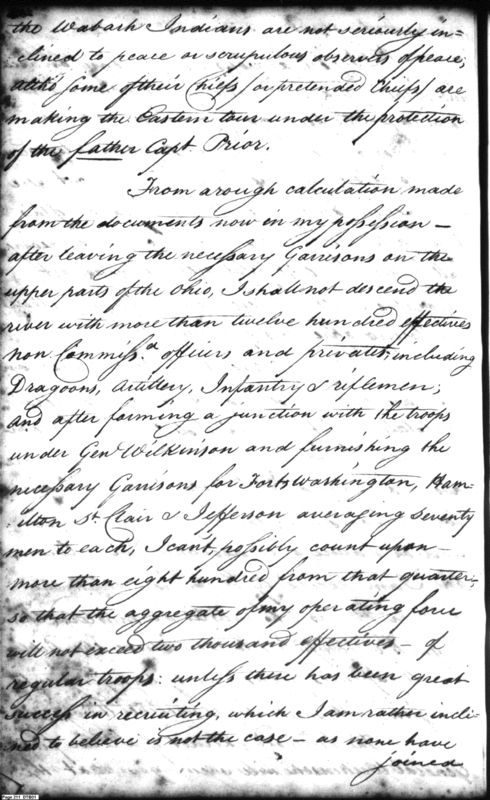 the Wabash Indians are not seriously in=
clined to peace or scrupulous observers of peace;
altho some of their Chiefs/or pretended Chiefs/are
making the Eastern tour under the protection
of the father Capt. Prior.
From a rough calculation made
from the documents now in my possession -
after leaving the necessary Garrisons on the
upper parts of the Ohio, I shall not descend the
river with more than twelve hundred effectives
non Commissd. officers and privates, including
Dragoons, Artillery, Infantry & riflemen;
and after forming a junction with the troops
under Genl Wilkinson and furnishing the
necessary Garrisons for Forts Washington, Ham=
ilton St. Clair & Jefferson averaging seventy
men to each, I can't, possibly count upon -
more than eight hundred from that quarter;
so that the aggregate of my operating force
will not exceed two thousand effectives - of
regular troops: unless there has been great
success in recruiting, which I am rather incli=
ned to believe is not the case - as none have
joined